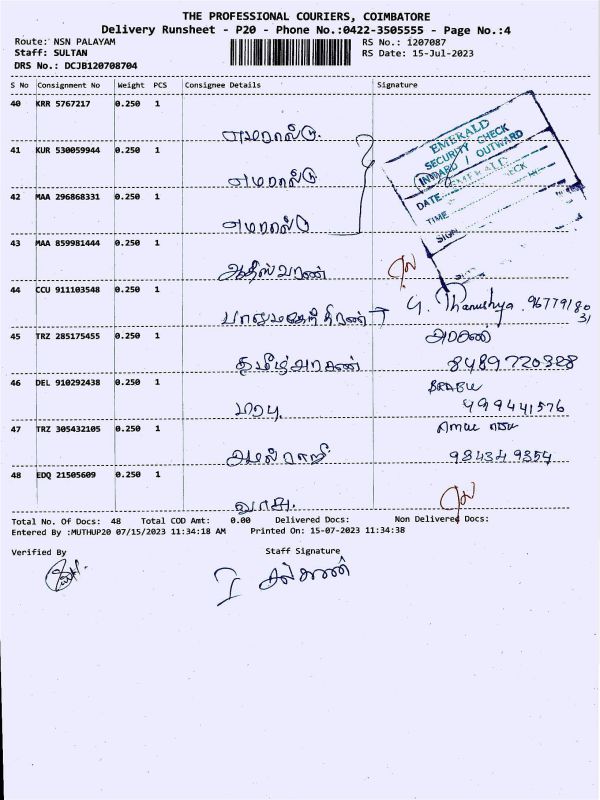 THE PROFESSIONAL COURIERS, COIMBATORE
Delivery Runsheet - P20 - Phone No.:0422-3505555 - Page No.:4
Route: NSN PALAYAM
RS No.: 1207087
Staff: SULTAN
RS Date: 15-Jul-2023
DRS No.: DCJB120708704
S No Consignment No Weight PCS Consignee Details Signature
40 KRR 5767217 0.250 1
எமரால்டு.
41 KUR 530059944 0.250 1
எமரால்டு
42 MAA 296868331 0.250 1
எமரால்டு
EMERALD
SECURITY CHECK
INWARD / OUTWARD
DATE
TIME
SIGN
43 MAA 859981444 0.250 1
ஆதீஸ்வரன்
44 CCU 911103548 0.250 1
G. Thanushya.
45 TRZ 285175455 0.250 1
அரசன்
தமிழ்அரசன்
8489720328
46 DEL 910292438 0.250 1
PRABU
பிரபு.
47 TRZ 305432105 0.250 1
அமல்ராஜ்
984349354
48 EDQ 21505609 0.250 1
வாசு.
Total No. Of Docs: 48 Total COD Amt: 0.00 Delivered Docs: Non Delivered Docs:
Entered By :MUTHUP20 07/15/2023 11:34:18 AM Printed On: 15-07-2023 11:34:38
Verified By Staff Signature